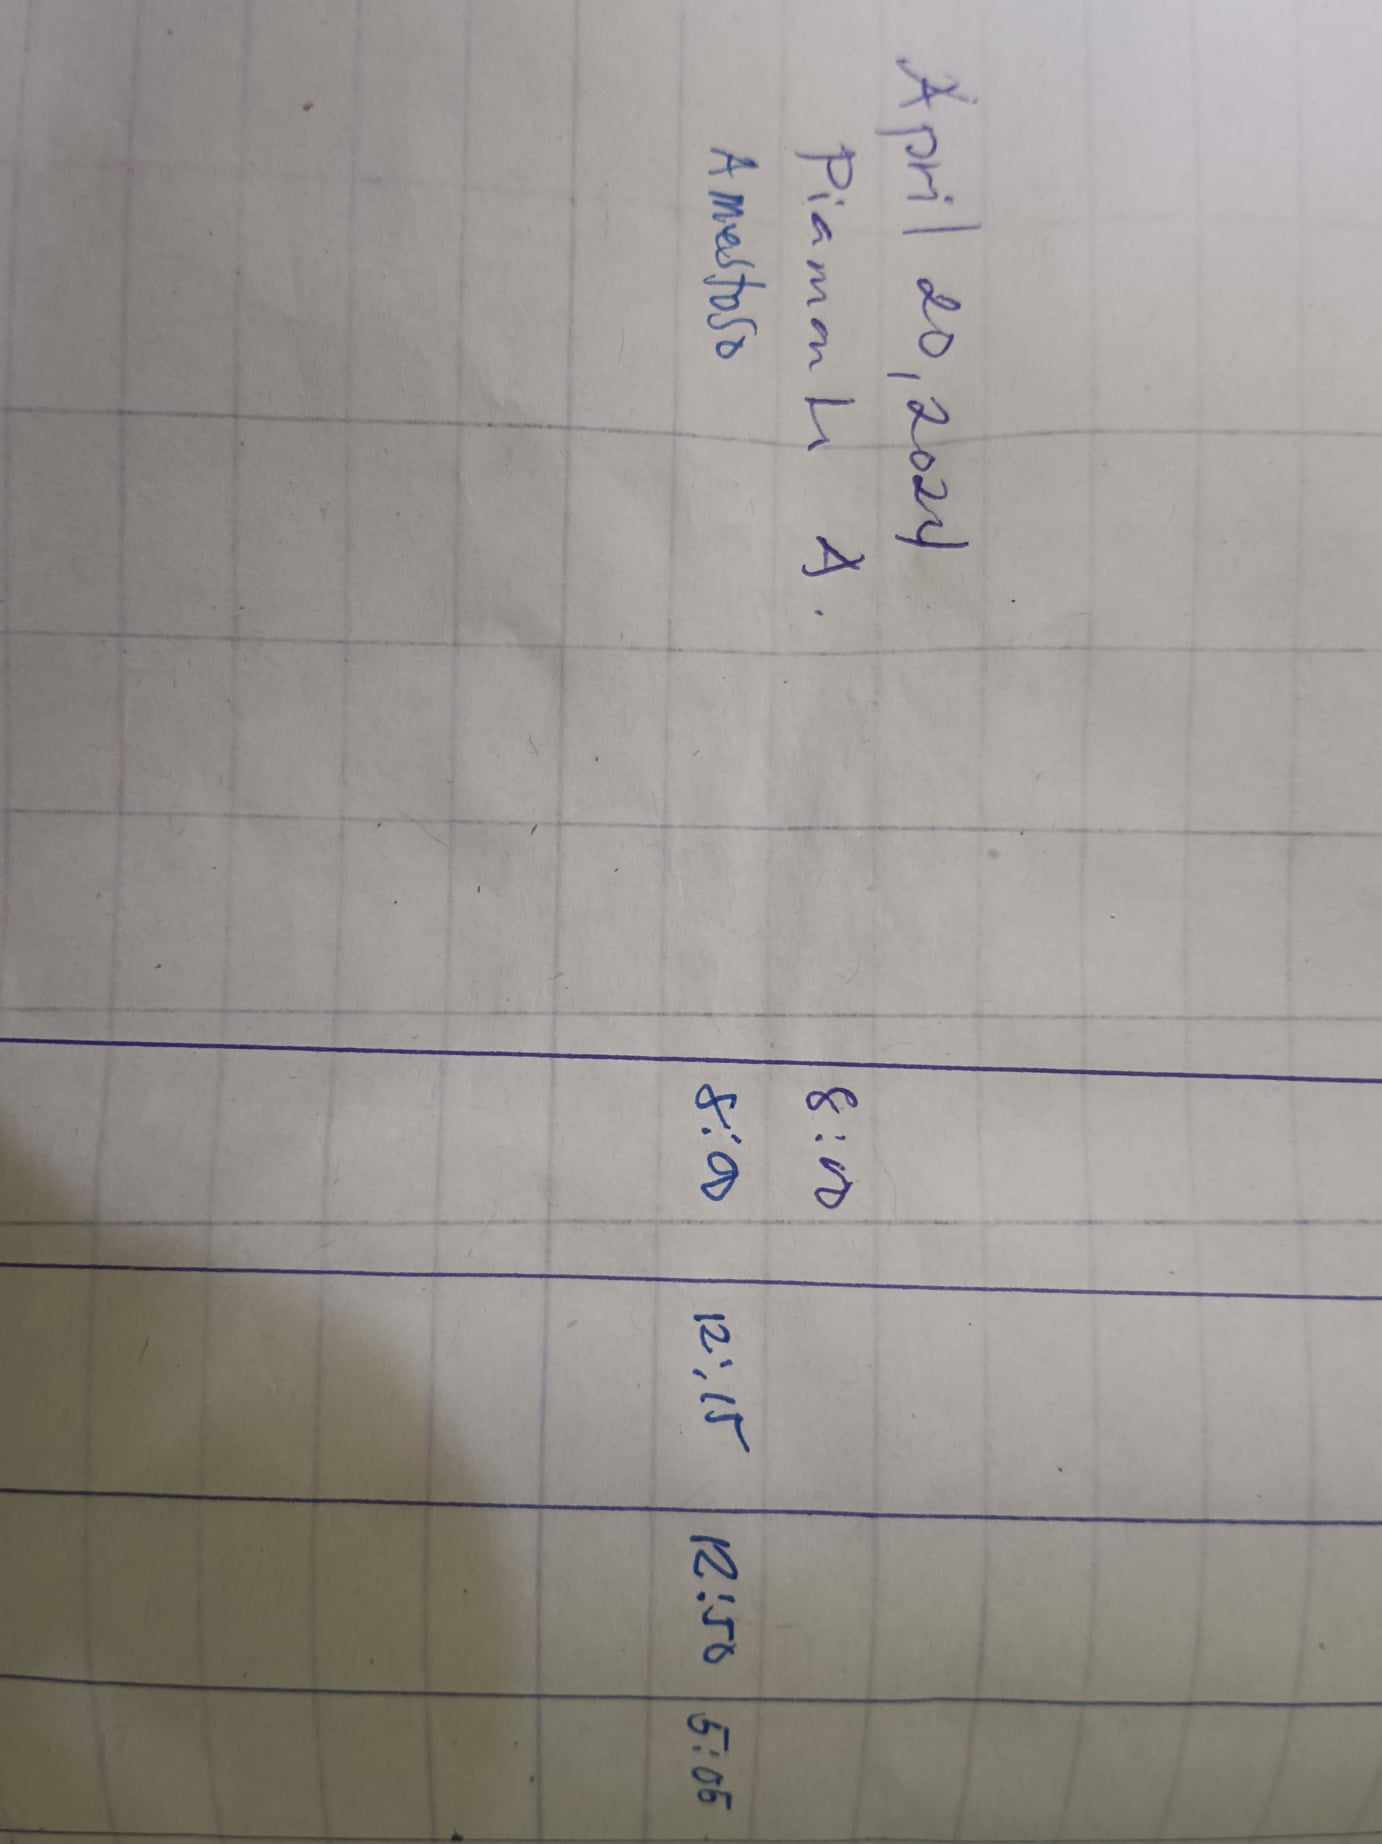 April 20, 2024
Piamonti A. 8:00
Amestoso 8:00 12:15 12:50 5:05